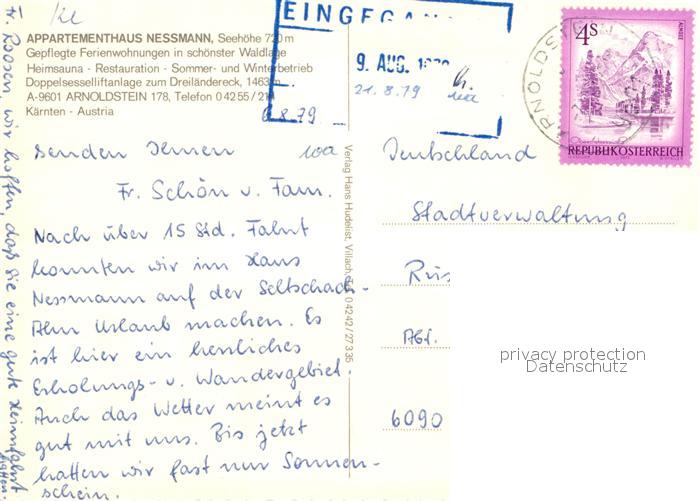 APPARTEMENTHAUS NESSMANN, Seehöhe 720 m
Gepflegte Ferienwohnungen in schönster Waldlage
Heimsauna - Restauration - Sommer- und Winterbetrieb
Doppelsesselliftanlage zum Dreiländereck, 1463 m
A-9601 ARNOLDSTEIN 178, Telefon 0 42 55 / 21
Kärnten - Austria
8.79
EINGEGAN
9. AUG. 1979
21.8.79
4 S
ALMSEE
REPUBLIK ÖSTERREICH
ARNOLDST
senden Ihnen
Fr. Schön u. Fam.
Nach über 15 Std. Fahrt
konnten wir im Haus
Nessmann auf der Seltschach-
Alm Urlaub machen. Es
ist hier ein herrliches
Erholungs- u. Wandergebiet.
Auch das Wetter meint es
gut mit uns. Bis jetzt
hatten wir fast nur Sonnen-
schein.
Fr. Roosen, wir hoffen, daß sie eine gute Heimfahrt
hatten.
Verlag Hans Hudelist, Villach, Tel. 0 42 42 / 27 3 35
Deutschland
Stadtverwaltung
Rüs
Abt.
6090
privacy protection
Datenschutz